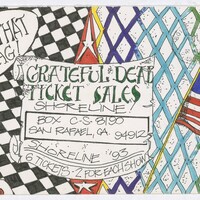 THAT
GRATEFUL DEAD
TICKET SALES
SHORELINE
BOX C-S-8190
SAN RAFAEL, CA.
94912
SHORELINE '93
6 TICKETS - 2 FOR EACH SHOW